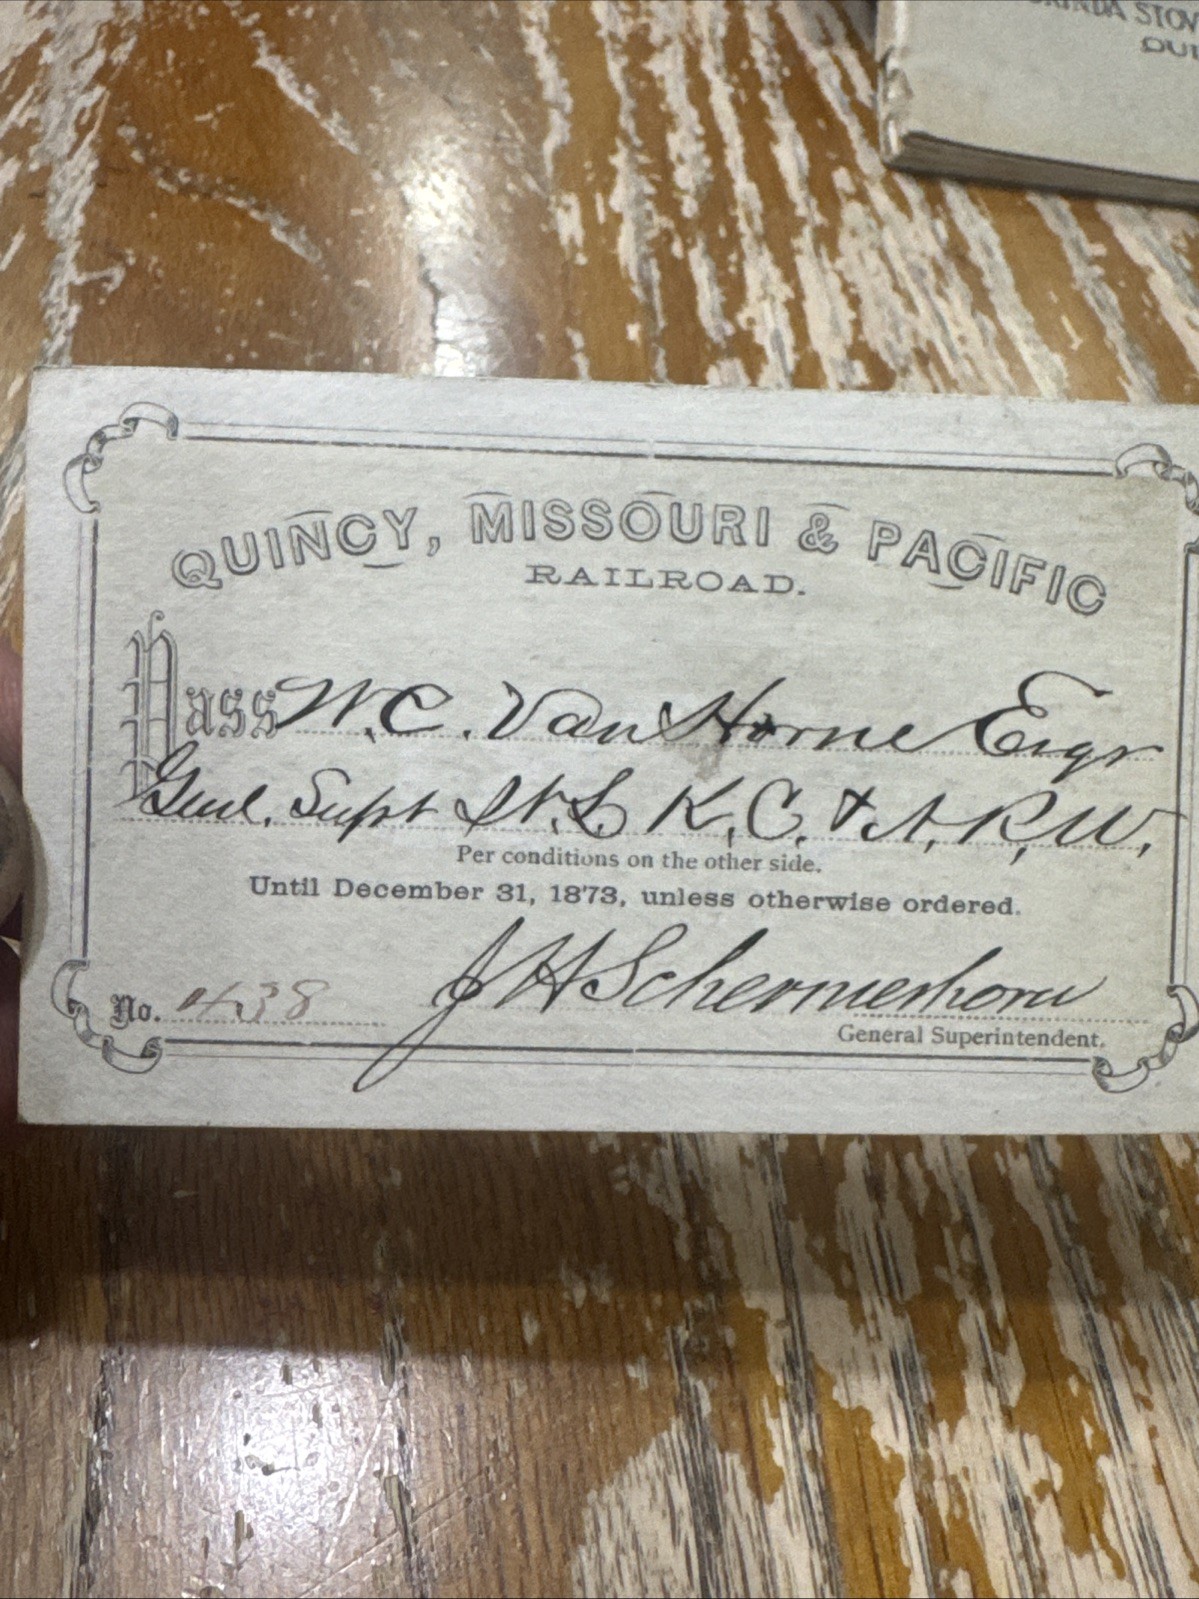 STOV
QUINCY, MISSOURI & PACIFIC
RAILROAD.
Pass W. C. Van Horne Esqr
Genl. Supt St. L. K. C. & N. R. W.
Per conditions on the other side.
Until December 31, 1873, unless otherwise ordered.
No. 438 J H Schermerhorn
General Superintendent.